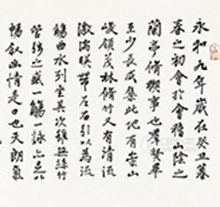 永和九年歲在癸丑暮
春之初會於會稽山陰之
蘭亭脩禊事也羣賢畢
至少長咸集此地有崇山
峻領茂林脩竹又有清流
激湍暎帶左右引以為流
觴曲水列坐其次雖無絲竹
管絃之盛一觴一詠亦足以
暢敘幽情是日也天朗氣